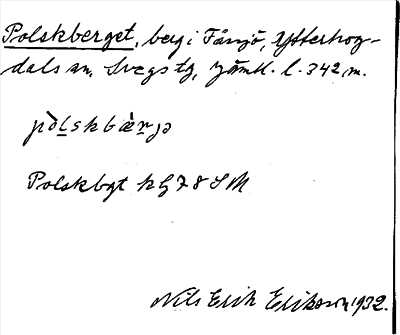 Polskberget, berg i Fåssjö, Ytterhog-
dals sn, Svegs tg, Jämtl. l. 342 m.
pòlskbæ̀rjə
Polskbgt kg 78 SM
Nils Erik Eriksson 1932.